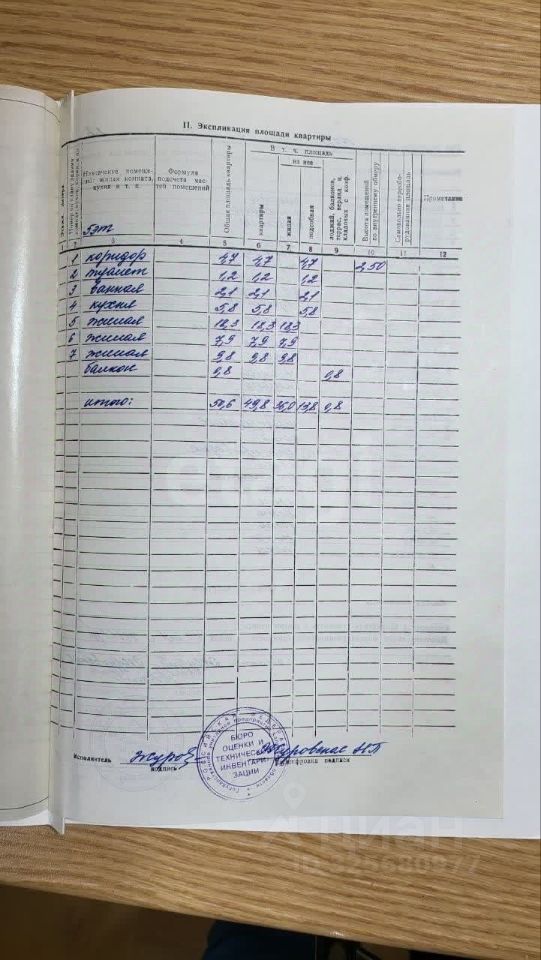 II. Экспликация площади квартиры
Общая площадь квартиры
В т. ч. площадь
из нее
квартиры
жилая
подсобная
лоджий, балконов, террас, веранд и кладовых с коэф.
Высота помещений по внутреннему обмеру
Самовольно переоборудованная площадь
Примечание
Формула подсчета частей помещений
1 2 3 4 5 6 7 8 9 10 11 12
1 коридор 4,7 4,7 4,7 2,50
2 туалет 1,2 1,2 1,2
3 ванная 2,1 2,1 2,1
4 кухня 5,8 5,8 5,8
5 жилая 18,3 18,3 18,3
6 жилая 7,9 7,9 7,9
7 жилая 9,8 9,8 9,8
балкон 0,8 0,8
итого: 50,6 49,8 36,0 13,8 0,8
Исполнитель
подпись
расшифровка подписи
БЮРО
ОЦЕНКИ И
ТЕХНИЧЕСКОЙ
ИНВЕНТАРИ
ЗАЦИИ
циан